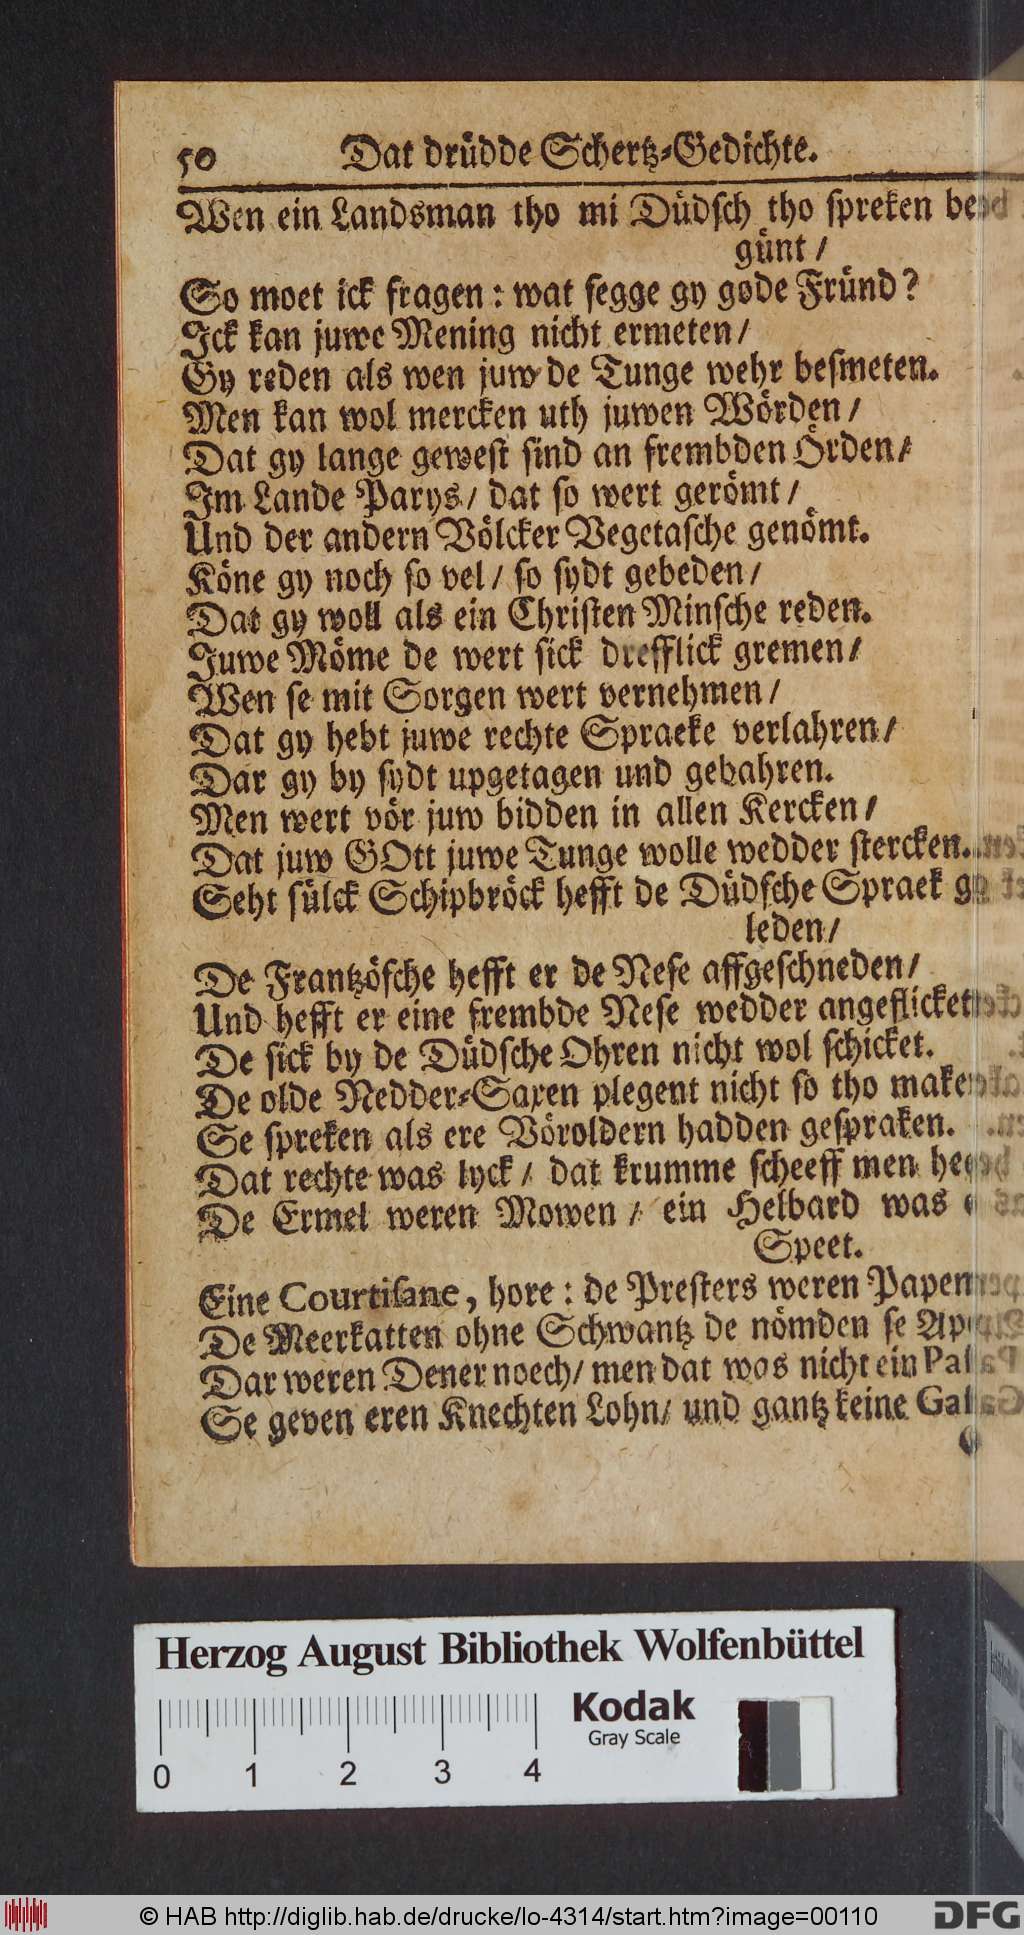 50 Dat drüdde Schertz-Gedichte.
Wen ein Landsman tho mi Düdsch tho spreken be
günt /
So moet ick fragen : wat segge gy gode Fründ?
Ick kan juwe Mening nicht ermeten /
Gy reden als wen juw de Tunge wehr besmeten.
Men kan wol mercken uth juwen Wörden /
Dat gy lange gewest sind an frembden Örden /
Im Lande Parys / dat so wert gerömt /
Und der andern Völcker Vegetasche genömt.
Köne gy noch so vel / so sydt gebeden /
Dat gy woll als ein Christen Minsche reden.
Juwe Möme de wert sick drefflick gremen /
Wen se mit Sorgen wert vernehmen /
Dat gy hebt juwe rechte Spraeke verlahren /
Dar gy by sydt upgetagen und gebahren.
Men wert vör juw bidden in allen Kercken /
Dat juw GOtt juwe Tunge wolle wedder stercken.
Seht sülck Schipbröck hefft de Düdsche Spraek ge
leden /
De Frantzösche hefft er de Nese affgeschneden /
Und hefft er eine frembde Nese wedder angeflicket
De sick by de Düdsche Ohren nicht wol schicket.
De olde Nedder-Saxen plegent nicht so tho maken
Se spreken als ere Vöroldern hadden gespraken.
Dat rechte was lyck / dat krumme scheeff men
De Ermel weren Mowen / ein Helbard was
Speet.
Eine Courtisane, hore : de Presters weren Papen
De Meerkatten ohne Schwantz de nömden se
Dar weren Dener noech / men dat was nicht ein
Se geven eren Knechten Lohn / und gantz keine
Herzog August Bibliothek Wolfenbüttel
Kodak
Gray Scale
0 1 2 3 4
© HAB http://diglib.hab.de/drucke/lo-4314/start.htm?image=00110
DFG